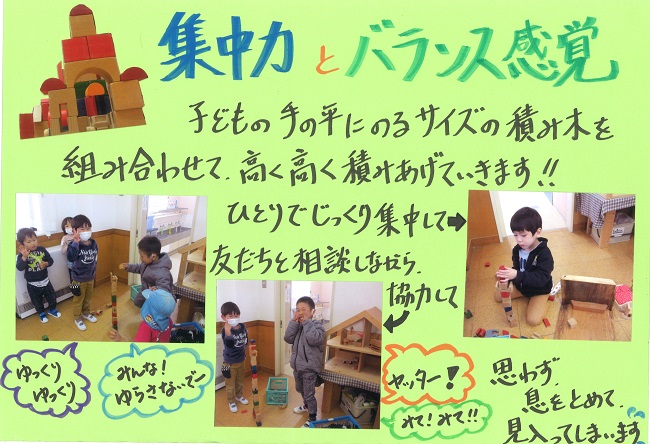 集中力とバランス感覚
子どもの手の平にのるサイズの積み木を
組み合わせて、高く高く積みあげていきます!!
ひとりでじっくり集中して➡
友だちと相談しながら、
協力して
ゆっくり
ゆっくり
みんな!
ゆらさないでー
ヤッター!
みて!みて!!
思わず、
息をとめて、
見入ってしまいます